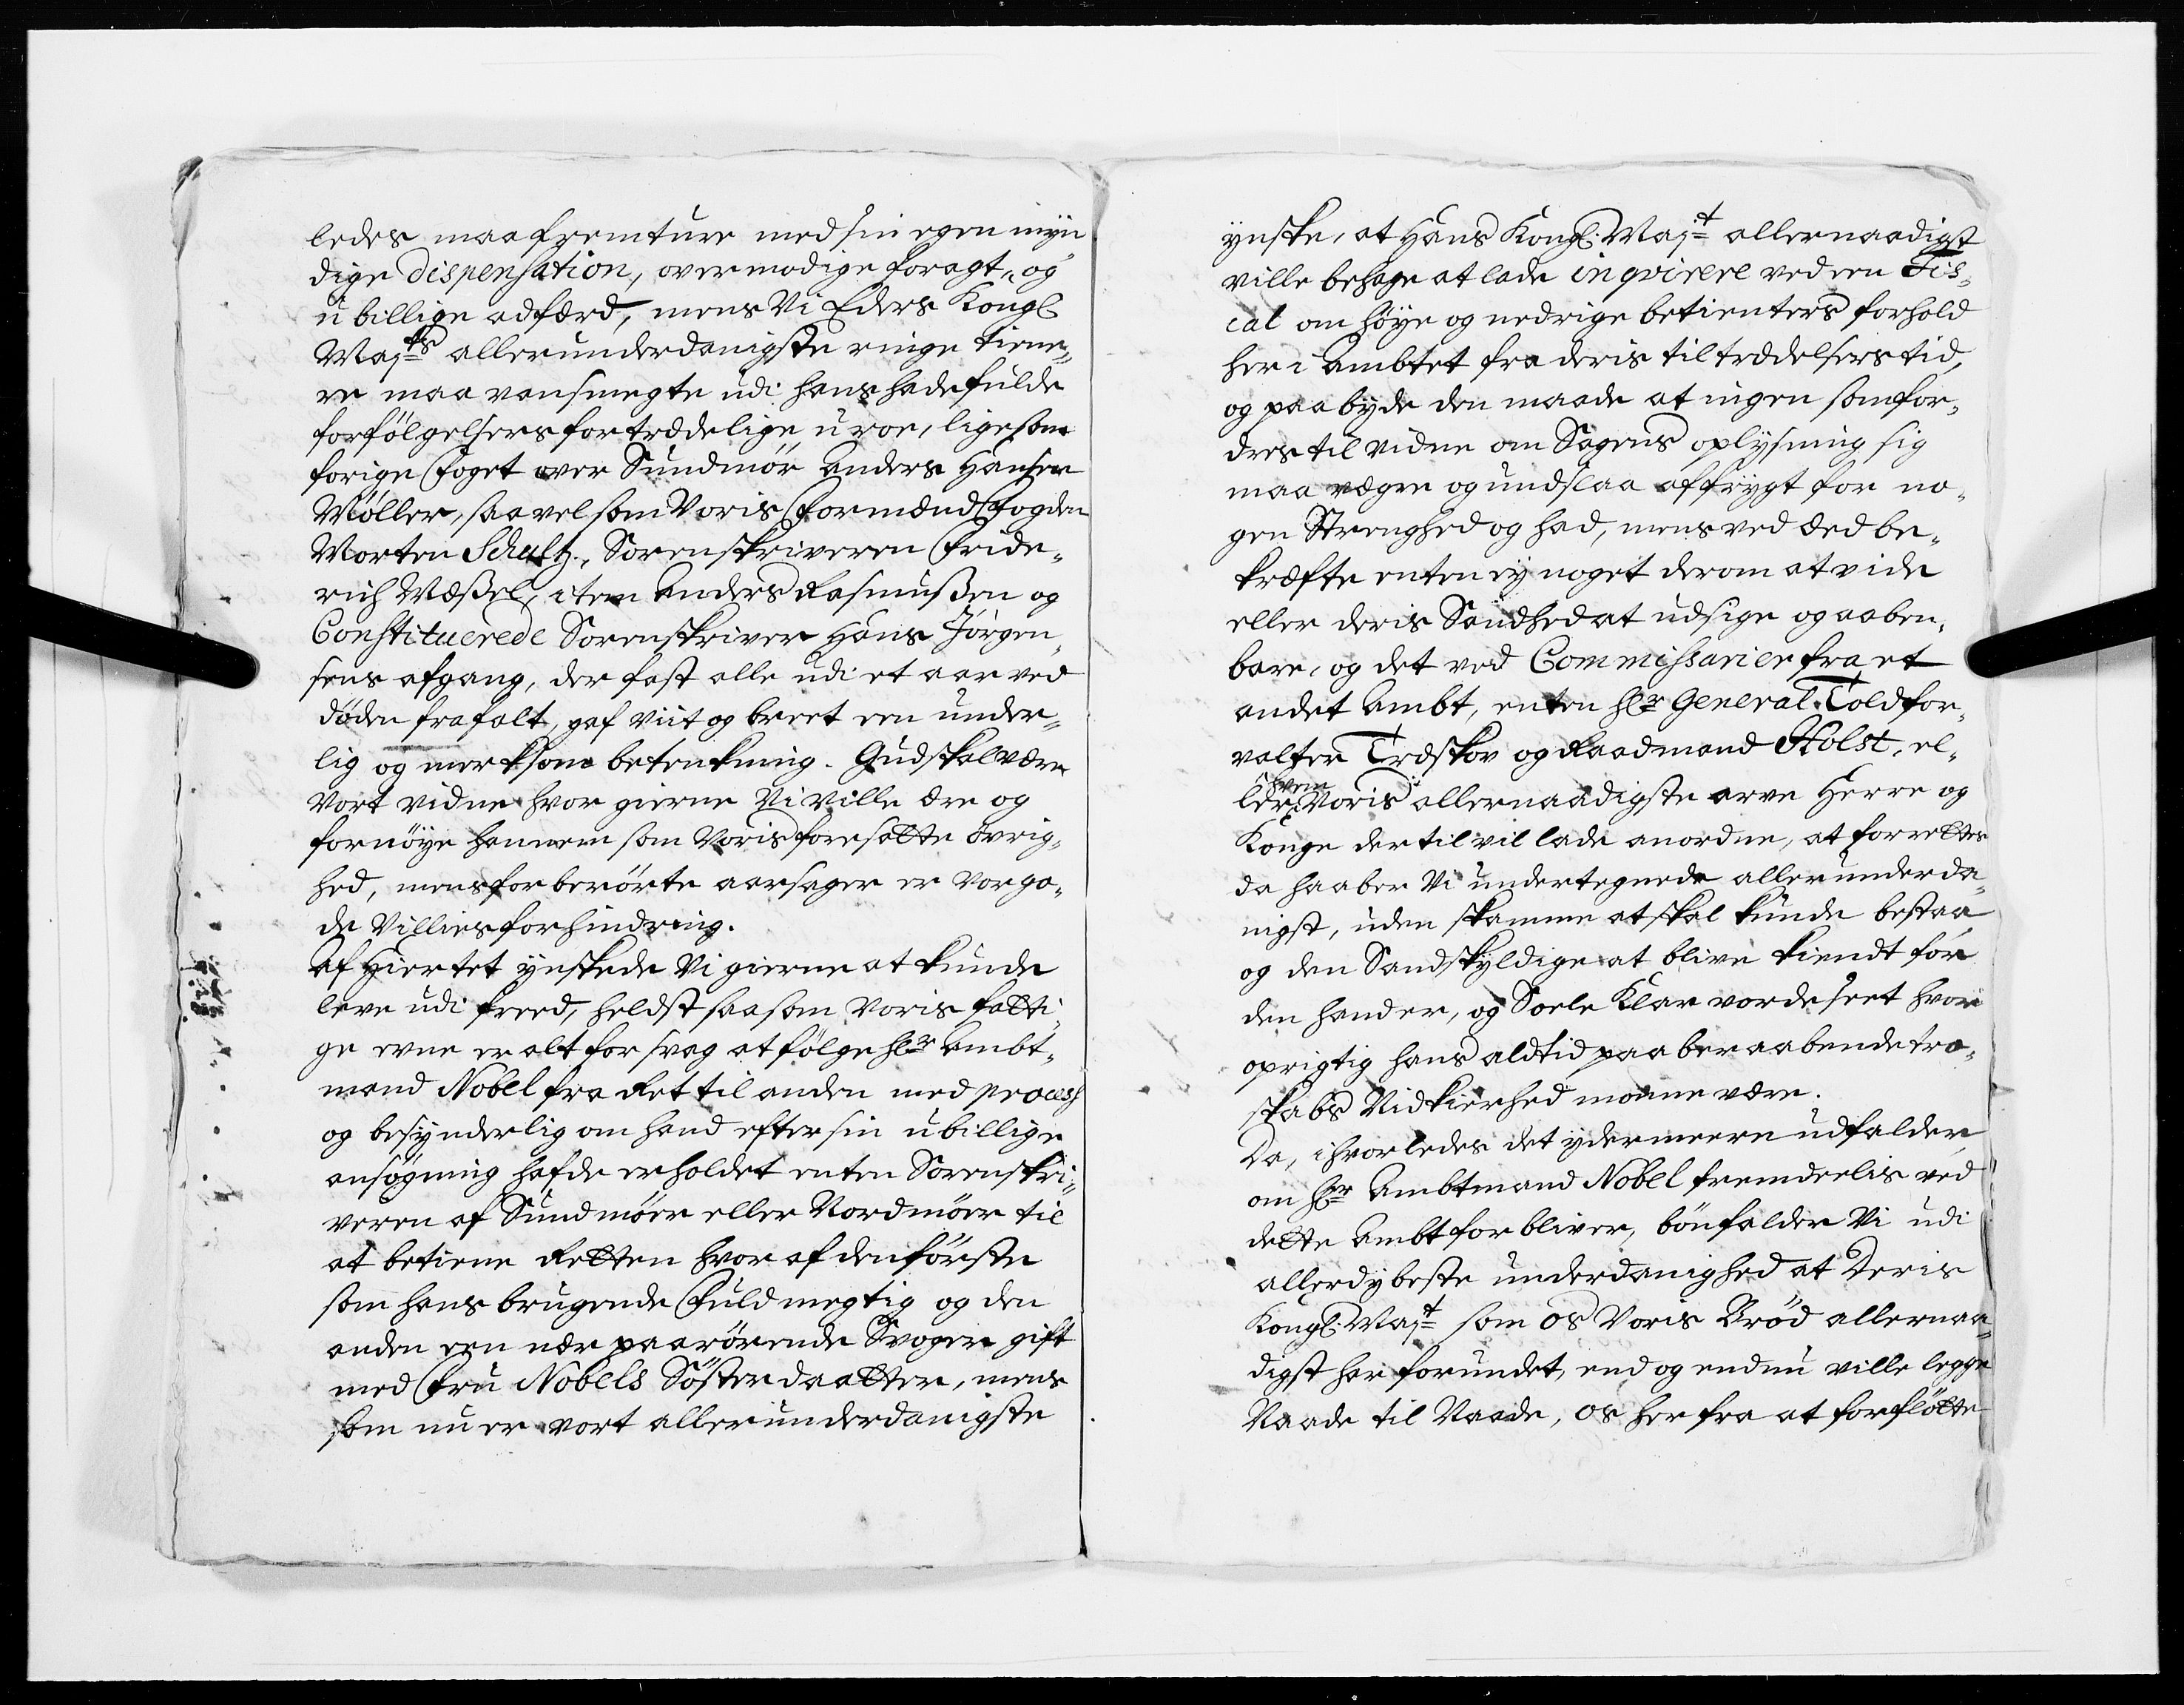 ledes maa fremture med sin egen myn
dige dispensation, overmodige foragt, og
ubillige adfærd, mens Vi Eders Kongl
Majts allerunderdanigste ringe tiene-
re maa vansmegte udi hans hadefulde
forfölgelsers fortrædelige uroe, ligesom
forige Foget over Sundmör Anders Hansen
Möller, saavelsom Voris Formænd Fogden
Morten Schultz, Sorenskriveren Fride-
rich Weßel, item Anders Rasmußen og
Constituerede Sorenskriver Hans Jörgen-
sens afgang, der fast alle udi et aar ved
döden frafalt, gaf viit og breet een under-
lig og merksom betenkning. Gud skal være
Vort vidne hvor gierne Vi ville ære og
fornöye hannem som Voris foresatte övrig-
hed, mens forberörte aarsager er vor go-
de Villies forhindring.
Af Hiertet ynskede Vi gierne at kunde
leve udi freed, heldst saasom Voris fatti-
ge evne er alt for svag at fölge Hr Ambt-
mand Nobel fra Ret til anden med process
og besynderlig om hand efter sin ubillige
ansögning hafde erholdet enten Sorenskri-
veren af Sundmöer eller Nordmöer til
at betiene Retten hvor af den förste
som hans brugende Fuldmegtig og den
anden een nær paarörende Svoger gift
med Fru Nobels Sösterdaatter, mens
som nu er vort allerunderdanigste
ynske, at Hans Kongl. Majt allernaadigst
ville behage at lade inqvirere ved een Fis-
cal om höye og nedrige betienters forhold
her i Ambtet fra deris tiltrædelsers tid,
og paabyde den maade at ingen som for-
dres til vidne om Sagens oplysning sig
maa vægre og undslaa af frygt for no-
gen Strenghed og had, mens ved æed be-
kræfte enten ey noget derom at vide
eller deris Sandhed at udsige og aaben-
bare, og det ved Commissarier fra et
andet Ambt, enten Hr General Toldfor-
valter Tredskov og Raadmand Holst, el-
ler hvem Voris allernaadigste arve Herre og
Konge dertil vil lade anordne, at forrettes
da haaber Vi undertegnede allerunderda-
nigst, uden skamme at skal kunde bestaa
og den Sandskyldige at blive kiendt for
den hand er, og Soele Klar vorde seet hvor
oprigtig hans aldtid paaberaabende tro-
skabs Nidkierhed monne være.
Da, ihvorledes det ydermeere udfalder,
om Hr Ambtmand Nobel fremdeelis ved
dette Ambt forbliver, bönfalder Vi udi
allerdybeste underdanighed at Deris
Kongl. Majt som os Voris Bröd allernaa-
digst har forundet, end og endnu ville legge
Naade til Naade, os her fra at forflötte